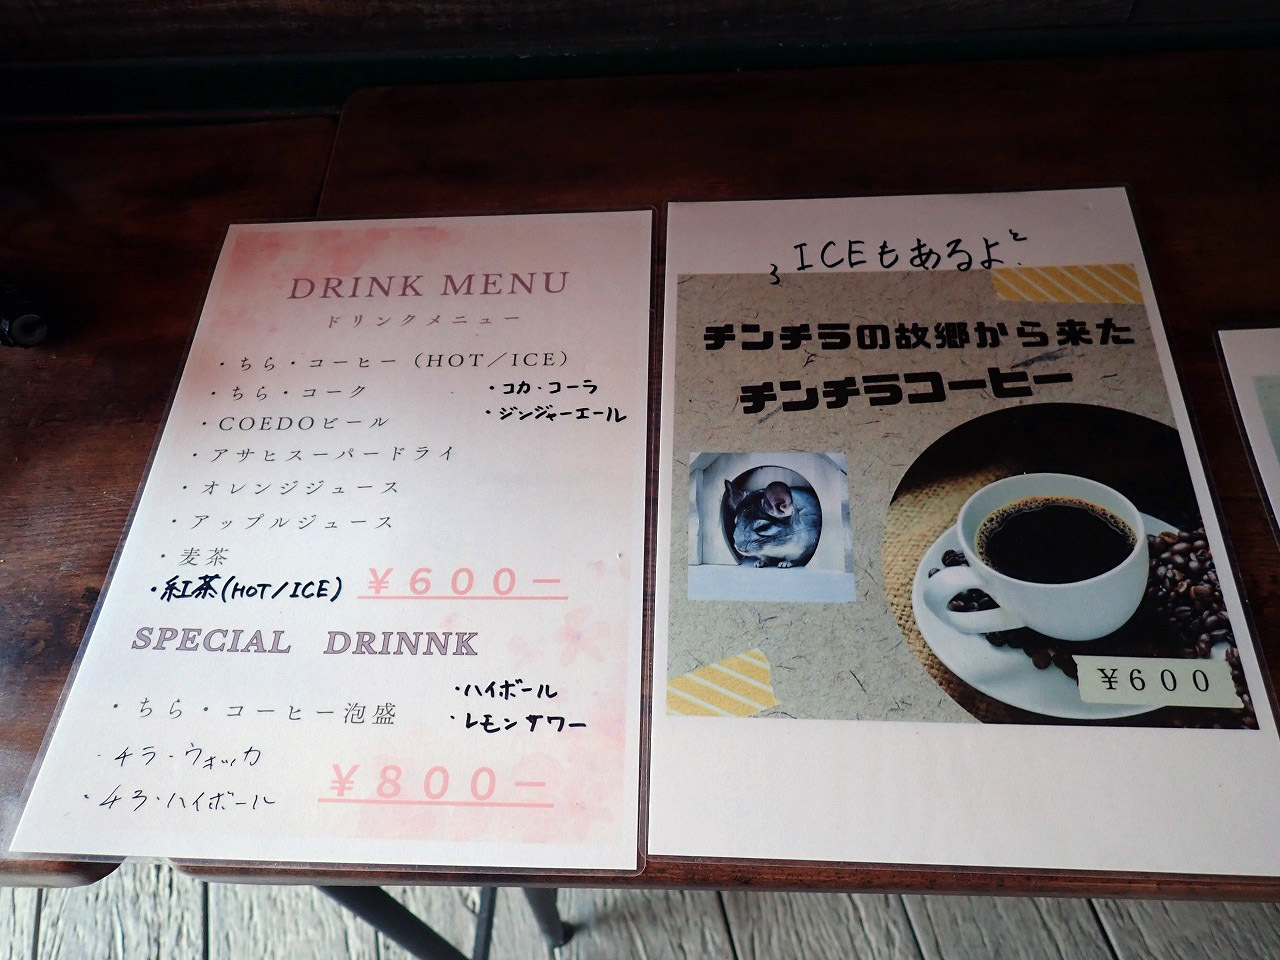 DRINK MENU
ドリンクメニュー
・ちら・コーヒー（HOT／ICE）
・ちら・コーク
・コカ・コーラ
・COEDOビール
・ジンジャーエール
・アサヒスーパードライ
・オレンジジュース
・アップルジュース
・麦茶
・紅茶(HOT/ICE)
￥600－
SPECIAL DRINNK
・ハイボール
・ちら・コーヒー泡盛
・レモンサワー
・チラ・ウォッカ
・チラ・ハイボール
￥800－
ICEもあるよ
チンチラの故郷から来た
チンチラコーヒー
￥600